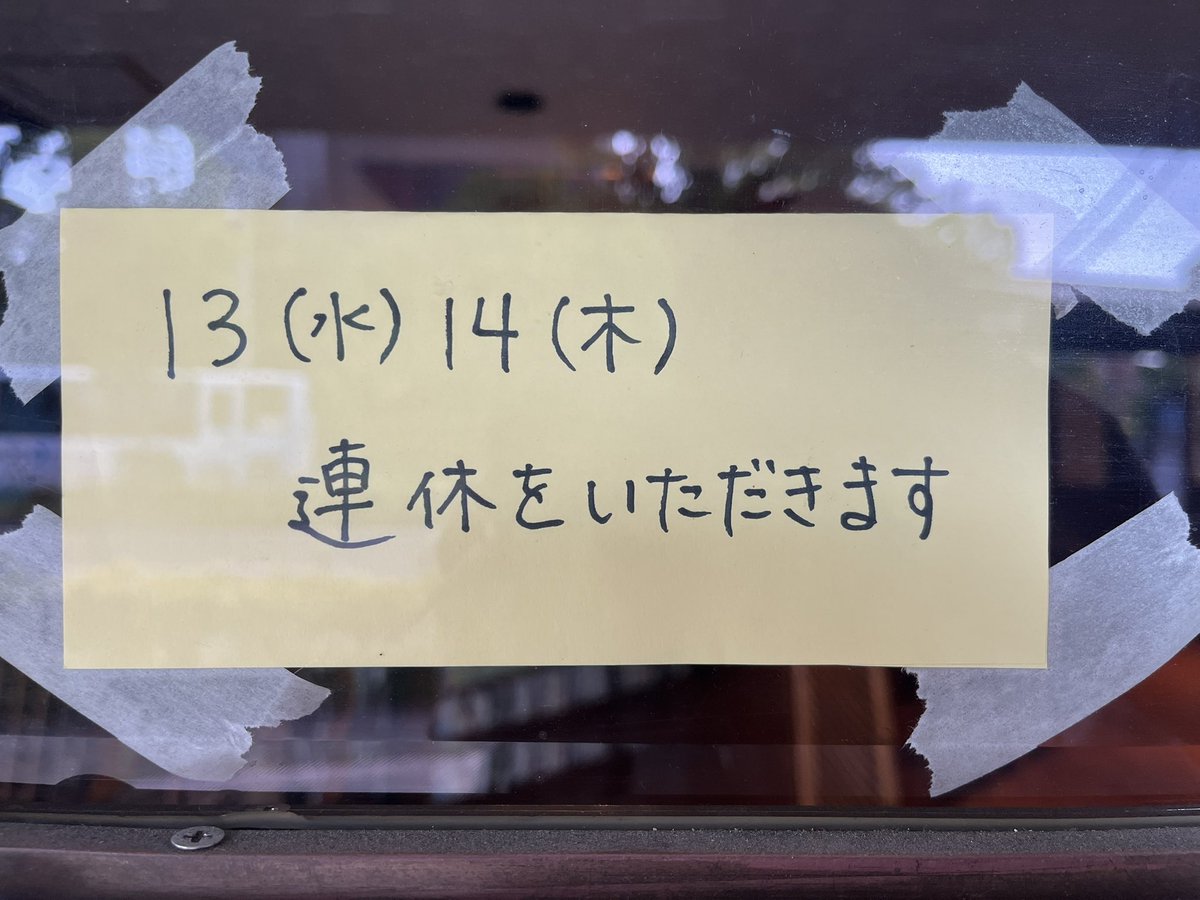 13(水)14(木)
連休をいただきます